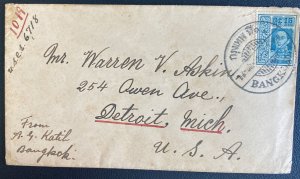 Mr. Warren V. Askin
254 Owen Ave.,
Detroit, Mich.
U. S. A.
From
A. G. Katil
Bangkok.
BANGK